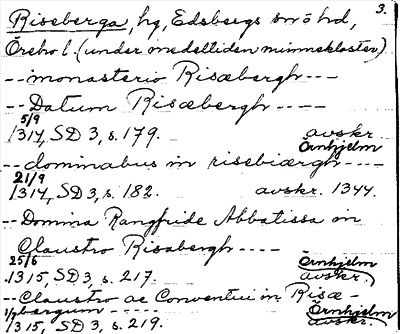 3.
Riseberga, hg, Edsbergs sn o hd,
Örebro l. (under medeltiden nunnekloster)
-- monasterio Risæbergh ---
-- Datum Risæbergh ----
5/9
1314, SD 3, s. 179. avskr Örnhjelm
-- dominabus in risebiærgh ----
21/9
1314, SD 3, s. 182. avskr. 1344.
-- Domina Rangfride Abbatissa in
Claustro Risabergh ----
25/6
1315, SD 3, s. 217. Örnhjelm avskr.
-- Claustro ac Conventui in Risæ-
bergum -----
1/7
1315, SD 3, s. 219. Örnhjelm avskr.